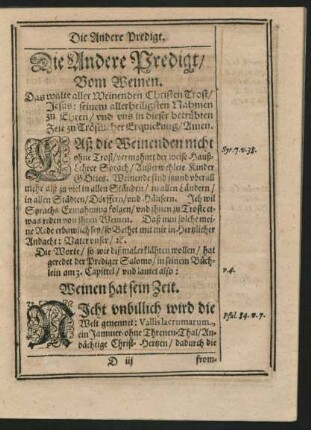 Die Andere Predigt.
Die Andere Predigt/
Vom Weinen.
Das walte aller Weinenden Christen Trost/
Jesus: seinem allerheiligsten Nahmen
zu Ehren/ vnd vns in dieser betrübten
Zeit zu Tröstlicher Erquickung/ Amen.
LAß die Weinenden nicht
ohne Trost/ vermahnet der weise Hauß-
Lehrer Syrach/ Außerwehlete Kinder
GOttes. Weinende sind jtzund vberall
mehr alß zu viel in allen Ständen/ in allen Ländern/
in allen Städten/ Dörffern/ vnd Häusern. Ich wil
Syrachs Ermahnung folgen/ vnd jhnen zu Trost et-
was reden von jhrem Weinen. Daß nun solche mei-
ne Rede erbawlich sey/ so Bethet mit mir in Hertzlicher
Andacht: Vater vnser/ ꝛc.
Die Worte/ so wir dißmal erklähren wollen/ hat
geredet der Prediger Salomo/ in seinem Büch-
lein am 3. Capittel/ vnd lautet also:
Weinen hat sein Zeit.
NIcht vnbillich wird die
Welt genennet: Vallis lacrumarum,
ein Jammer- ohne Threnen-Thal/ An-
dächtige Christ-Hertzen/ dadurch die
D iij
from-
Syr. 7. v. 38.
v. 4.
Psal. 84. v. 7.